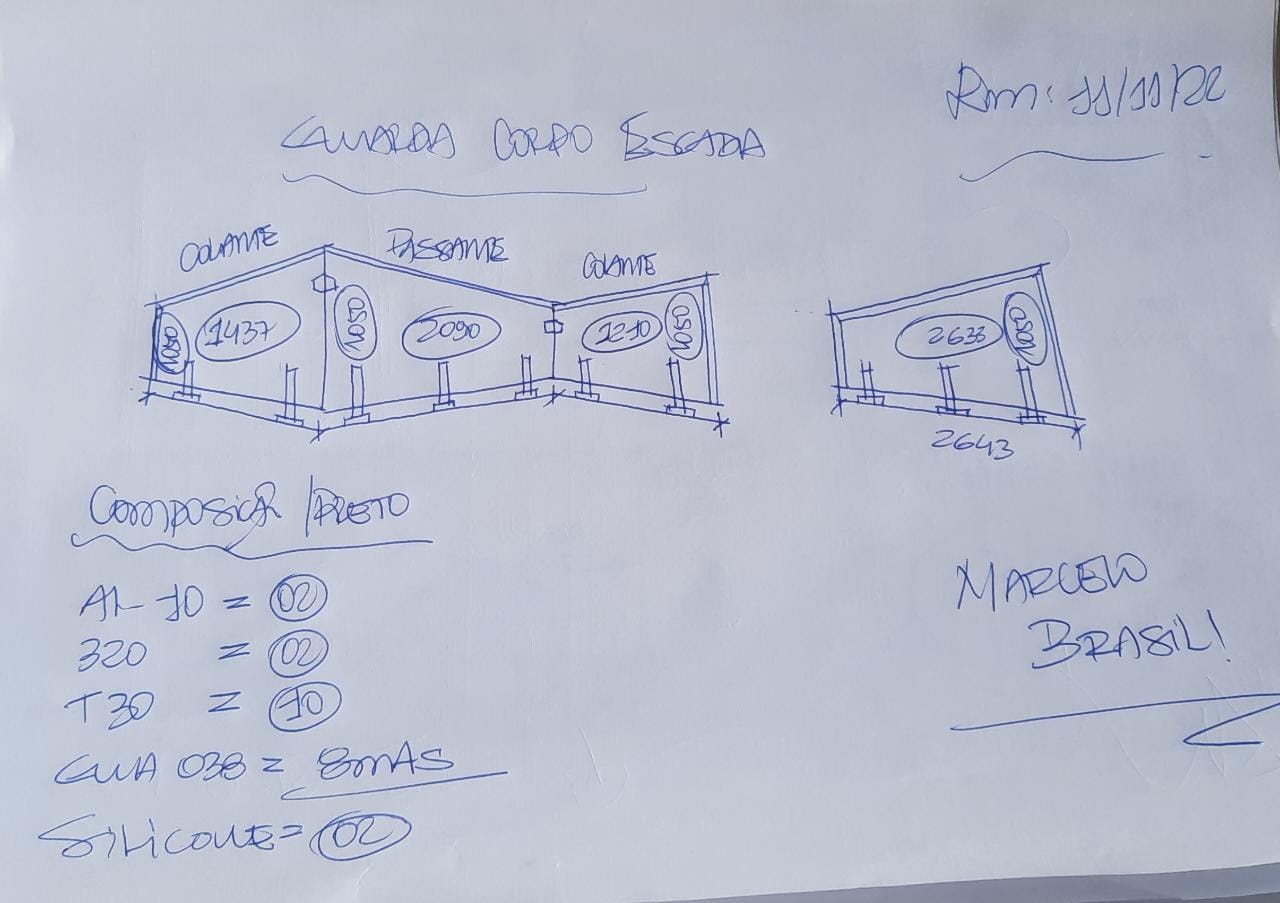 Rm: 11/11/22
GUARDA CORPO ESCADA
COLANTE PASSANTE COLANTE
1050 1437 1050 2090 1210 1050 2633 1050
2643
COMPOSIÇÃO / PRETO
AL 10 = 02
320 = 02
T30 = 10
GUIA 038 = 8mAS
SILICONE = 02
MARCELO
BRASIL!